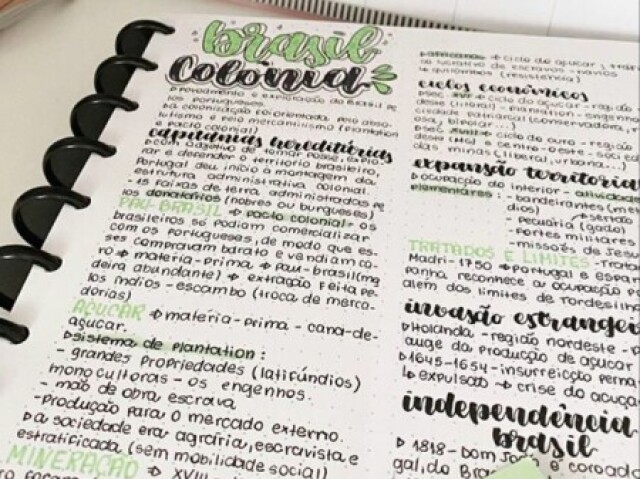 brasil
Colônia
povoamento e exploração do Brasil pe-
los portugueses.
a colonização foi orientada pelo abso-
lutismo e pelo mercantilismo (plantation
e pacto colonial)
capitanias hereditárias
com objetivo de tomar posse, explo-
rar e defender o território brasileiro,
Portugal deu início a montagem da
estrutura administrativa colonial.
15 faixas de terra administradas pe
los donatários (nobres ou burgueses)
PAU-BRASIL → pacto colonial - os
brasileiros só podiam comercializar
com os portugueses, de modo que es-
ses compravam barato e vendiam ca-
ro → matéria-prima → pau-brasil (ma
deira abundante) → extração feita pe-
los índios - escambo (troca de merca-
dorias)
AÇÚCAR → matéria-prima - cana-de-
açúcar.
sistema de plantation:
- grandes propriedades (latifúndios)
monocultoras - os engenhos.
- mão de obra escrava
- produção para o mercado externo.
a sociedade era agrária, escravista e
estratificada (sem mobilidade social)
MINERAÇÃO → XVIII
africanos → ciclo do açúcar
lucrativo de escravos - navios
quilombos (resistência)
ciclos econômicos
séc. XVI → ciclo do açúcar - região
deste (litoral) - plantation - engenho
ciedade patriarcal (conservadora,
sa, bipolar...)
séc. XVIII → ciclo do ouro - região
deste (MG) e centro-oeste - socied
nas (liberal, urbana...)
expansão territoria
ocupação do interior - atividades
plementares: - bandeirantes (m
dios) → sertão
- pecuária (gado)
- fortes militares
- missões de Jesu
TRATADOS E LIMITES - Trata
Madri - 1750 → Portugal e Espan
panha reconhece a ocupação p
além dos limites de Tordesilh
invasão estrangei
Holanda - região nordeste - o
auge da produção de açúcar
1645-1654 - insurreição perna
↳ expulsão → crise do açúca
independência
brasil
1818 - Dom João é coroado
gal, do Bra